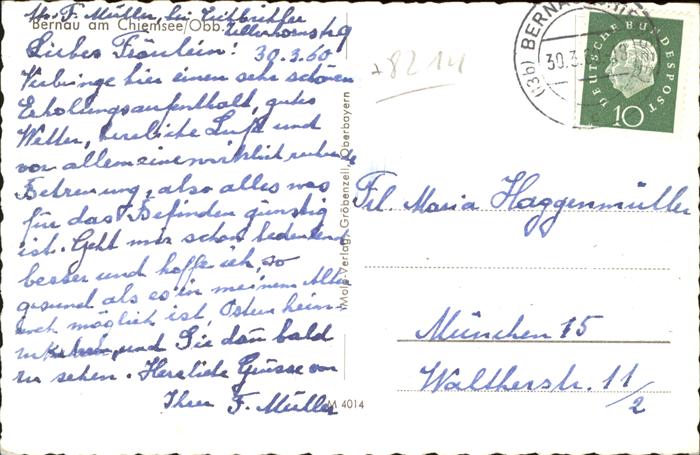 F. Müller, bei
Bernau am Chiemsee/Obb.
Liebes Fräulein! 30.3.60
Verbringe hier einen sehr schönen
Erholungsaufenthalt, gutes
Wetter, herrliche Luft und
vor allem eine wirklich
Betreuung, also alles was
für das Befinden günstig
ist. Geht mir schon bedeutend
besser und hoffe ich, so
gesund als es in meinem Alter
noch möglich ist, Ostern heim
und Sie dann bald
zu sehen. Herzliche Grüsse von
Ihrer F. Müller
M 4014
Mola-Verlag, Gröbenzell, Oberbayern
+8214
(13b) BERNAU
30.3.
DEUTSCHE BUNDESPOST
10
Frl. Maria Haggenmüller
München 15
Waltherstr. 11/2